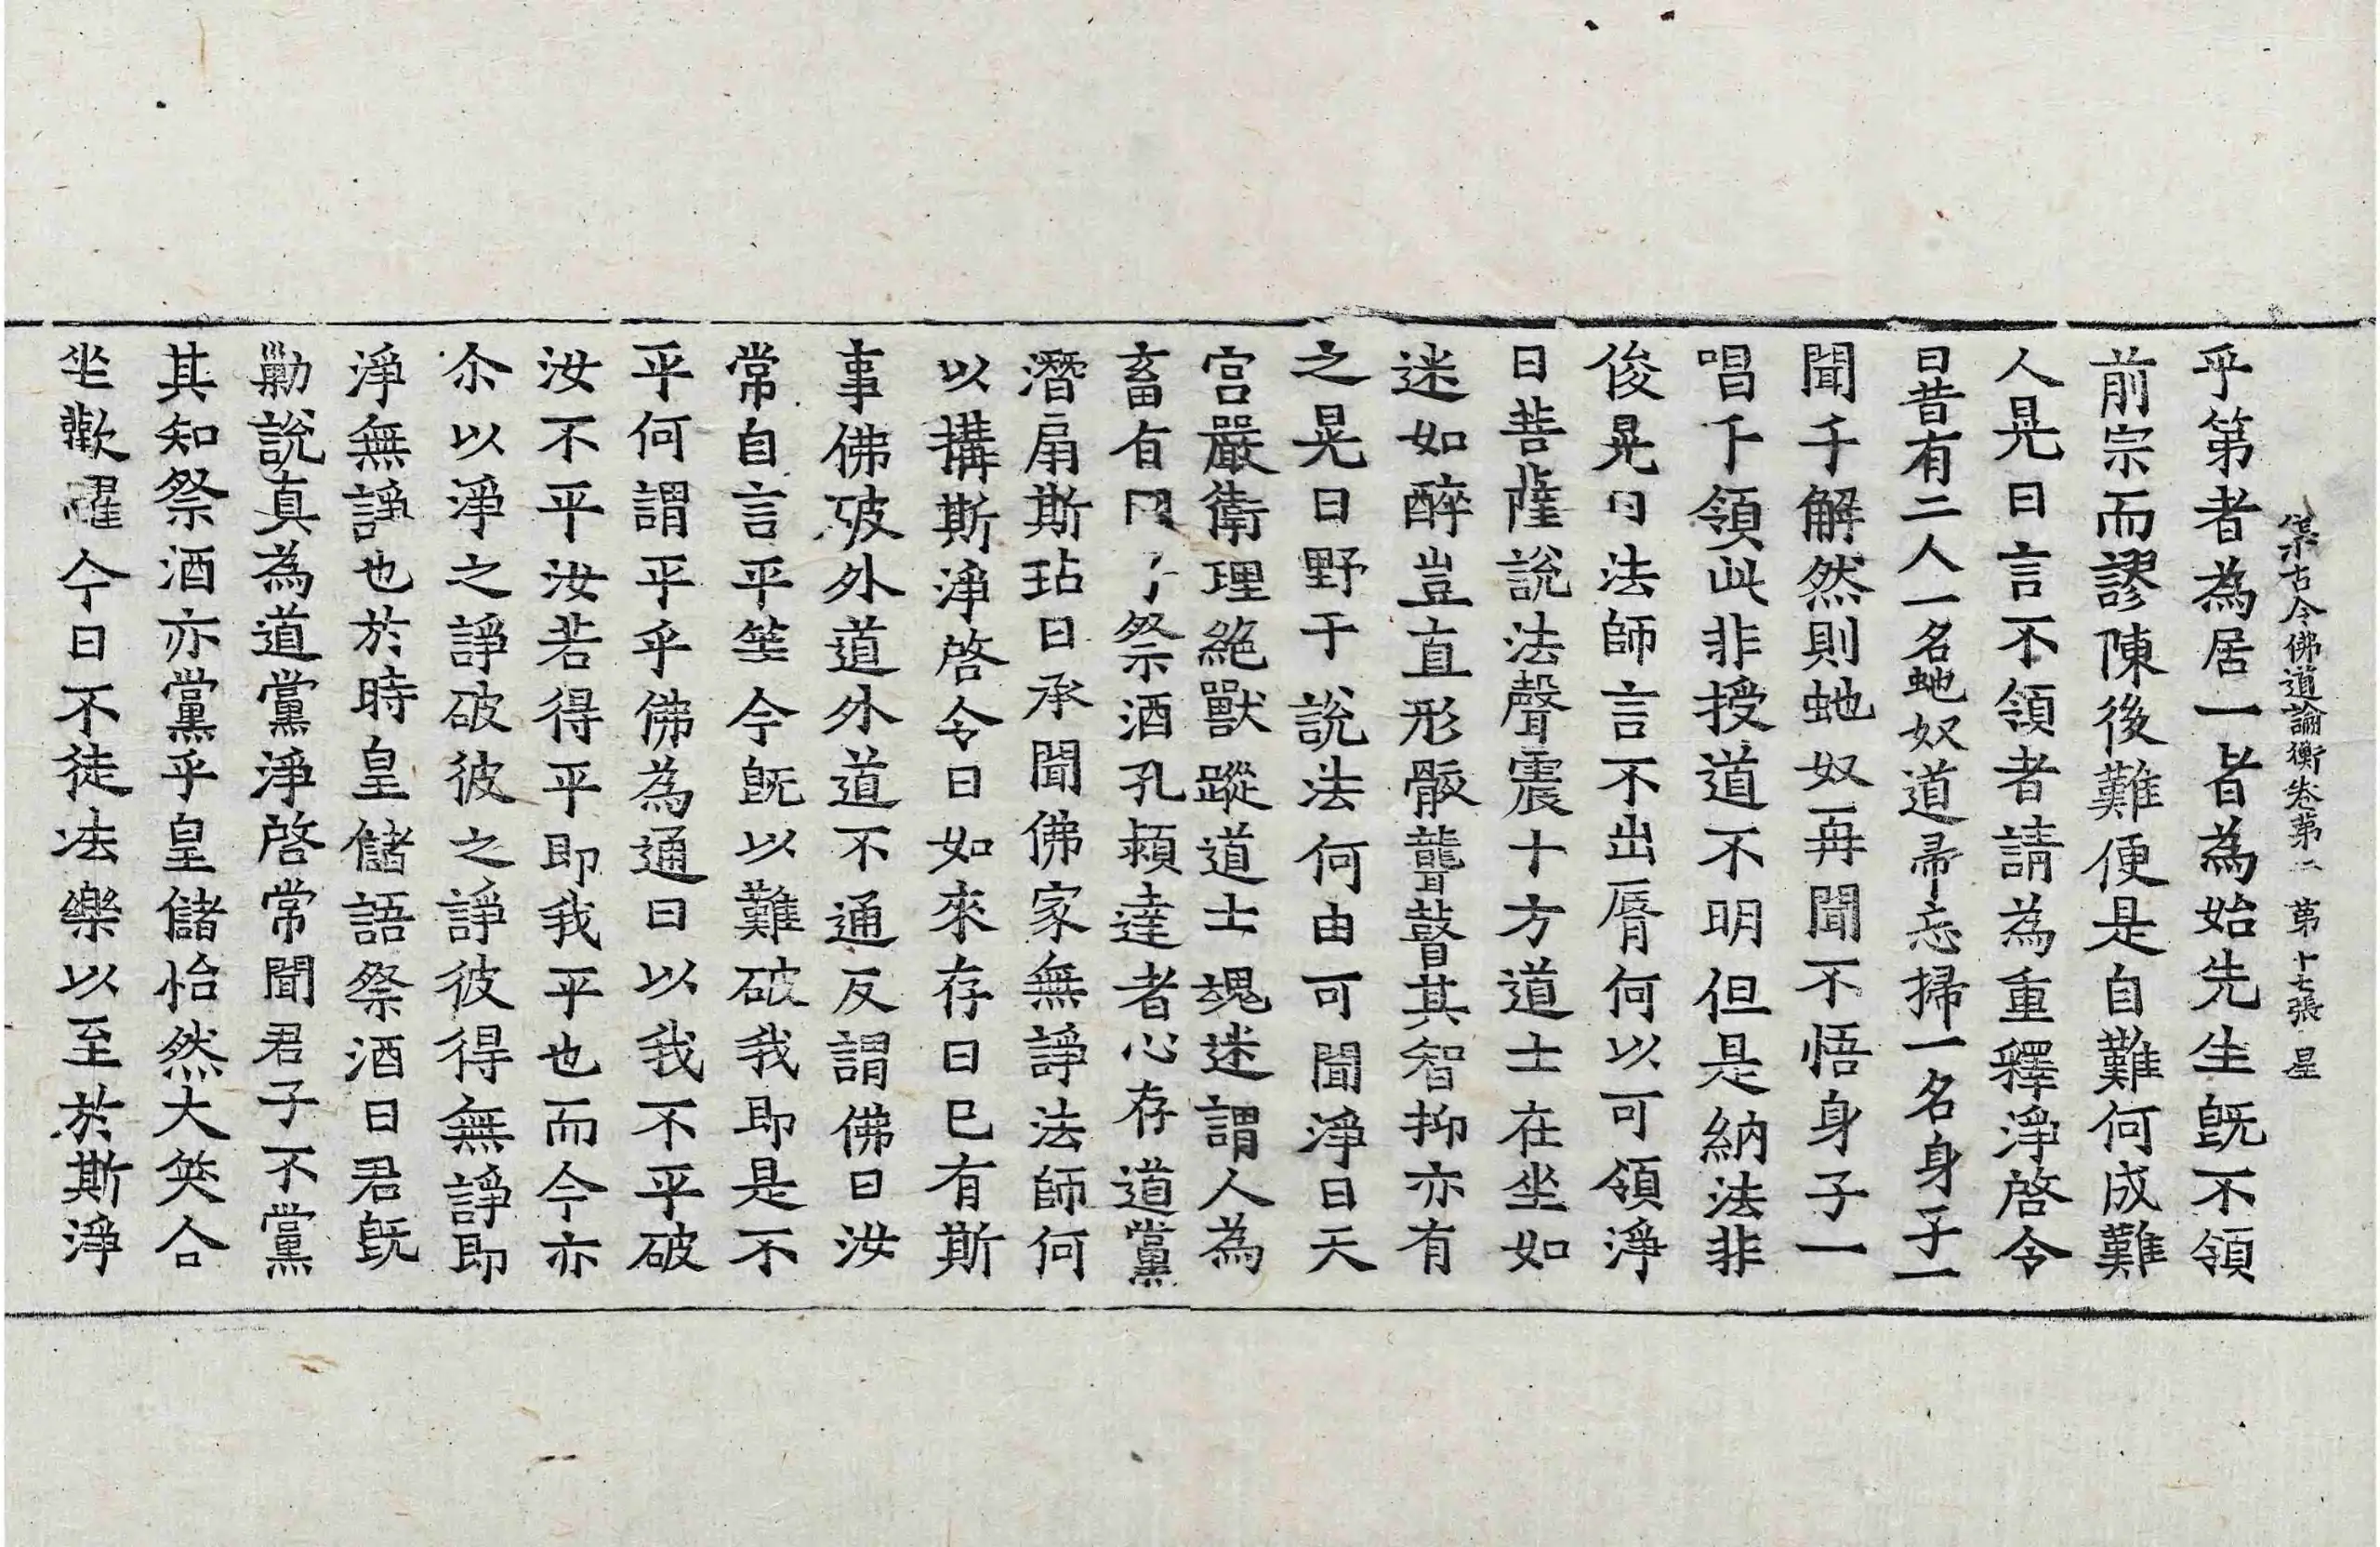 集古今佛道論衡卷第二 第十七張 星
乎第者為居一者為始先生旣不領
前宗而謬陳後難便是自難何成難
人晃曰言不領者請為重釋淨啓令
曰昔有二人一名虵奴道帚忘掃一名身子一
聞千解然則虵奴再聞不悟身子一
唱下領此非授道不明但是納法非
俊晃曰法師言不出脣何以可領淨
曰菩薩說法聲震十方道士在坐如
迷如醉豈直形骸聾瞽其智抑亦有
之晃曰野干說法何由可聞淨曰天
宮嚴衛理絕獸蹤道士魂迷謂人為
畜有國子祭酒孔穎達者心存道黨
潛扇斯玷曰承聞佛家無諍法師何
以搆斯淨啓令曰如來存日已有斯
事佛破外道外道不通反謂佛曰汝
常自言平等今旣以難破我即是不
平何謂平乎佛為通曰以我不平破
汝不平汝若得平即我平也而今亦
尒以淨之諍破彼之諍彼得無諍即
淨無諍也於時皇儲語祭酒曰君旣
勦說真為道黨淨啓常聞君子不黨
其知祭酒亦黨乎皇儲怡然大笑合
坐歡躍今日不徒法樂以至於斯淨